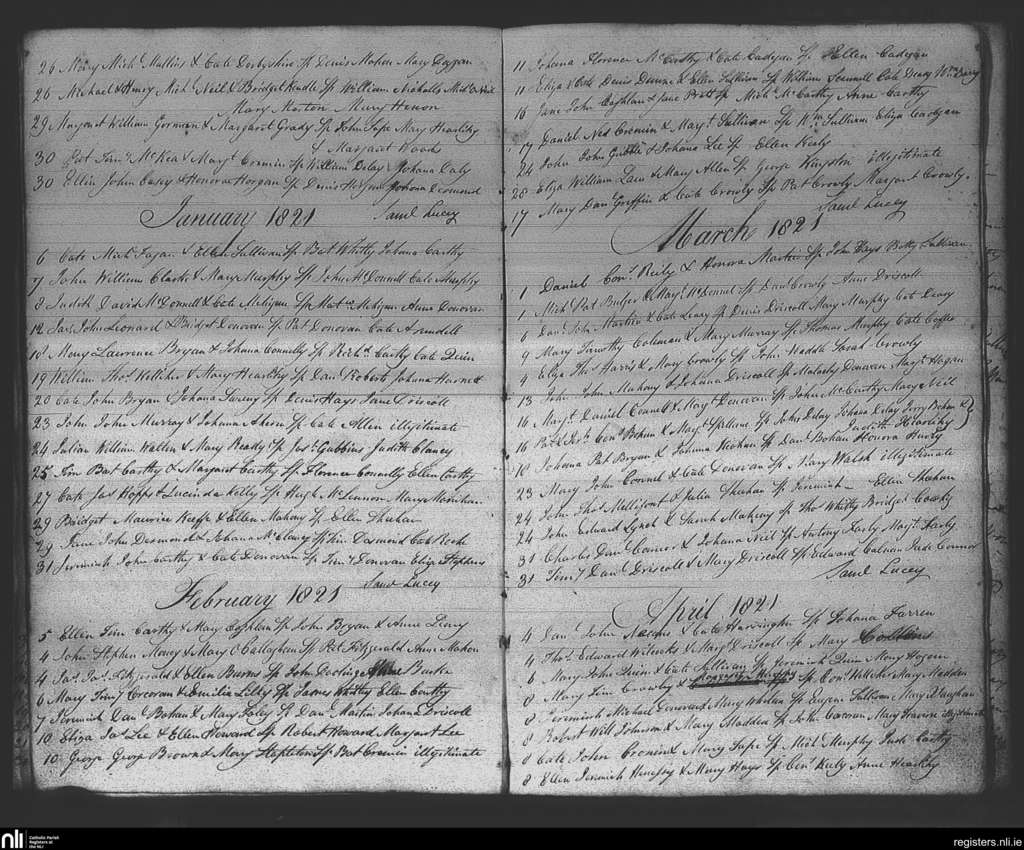 26 Mary Mich.l Mullins & Cate Derbyshire Sp Denis Mahon Mary Duggan
26 Michael & Henry Mich.l Neil & Bridget Sp William Nicholls Mich.l Neil
Mary Morton Mary Henon
29 Margaret William Gorman & Margaret Grady Sp John Sape Mary Hearlihy
& Margaret Wood
30 Pat Tim.y McKea & Marg.t Cremin Sp William Delay Johana Daly
30 Ellen John Casey & Honora Horgan Sp Denis Johana Desmond
Saml Lucey
January 1821
6 Cate Mich.l Fagan & Ellen Sullivan Sp Bat Whitty Johana Carthy
7 John William Clarke & Mary Murphy Sp John McDonnell Cate Murphy
8 Judith David McDonnell & Cate Meligan Sp Mat.w Meligan Anne Donovan
12 Ja.s John Leonard & Bridget Donovan Sp Pat Donovan Cate Arundell
Mary Lawrence Bryan & Johana Connelly Sp Rich.d Carthy Cate Quin
19 William Tho.s Kelliher & Mary Hearlihy Sp Dan.l Roberts Johana Harnett
20 Cate John Bryan & Johana Sweeny Sp Denis Hays Jane Driscoll
23 John John Murray & Johana Ahern Sp Cate Allen illigitimate
24 Julian William Wallen & Mary Ready Sp Jos.h Gubbins Judith Clancy
25 Tim Bart Carthy & Margaret Carthy Sp Florence Connelly Ellen Carthy
27 Cate Ja.s Hopps & Lucinda Kelly Sp Hugh McLennon Mary
29 Bridget Maurice Keefe & Ellen Mahony Sp Ellen Sheehan
29 Jane John Desmond & Johana McClancy Sp Tim Desmond Cate Roche
31 Jeremiah John Carthy & Cate Donovan Sp Tim.y Donovan Eliza Stephens
Saml Lucey
February 1821
5 Ellen Tim Carthy & Mary Coghlan Sp John Bryan & Anne Leary
4 John Stephen Money & Mary O'Callaghan Sp Pat Fitzgerald Anne Mahon
4 Ja.s Ja.s Fitzgerald & Ellen Burns Sp John Burke
6 Mary Tim.y Corcoran & Emilia Lilly Sp James Whitty Ellen Carthy
7 Jeremiah Dan.l Bohan & Mary Foley Sp Dan.l Martin Johana Driscoll
10 Eliza Ja.s Lee & Ellen Howard Sp Robert Howard Margaret Lee
10 George George Brown & Mary Stapleton Sp Bat Cremin illigitimate
11 Johana Florence McCarthy & Cate Cadegan Sp Hellen Cadegan
11 Eliza & Cate Denis Dunne & Ellen Sullivan Sp William Scannell Cate Deasy Wm Barry
16 Jane John Coghlan & Jane Pratt Sp Mich.l McCarthy Anne Carthy
17 Daniel Ned Cremin & Mary.t Sullivan Sp Wm Sullivan Eliza Cadegan
24 John John Guthle & Johana Lee Sp Ellen Healy
25 Eliza William Law & Mary Allen Sp George Kingston illigitimate
28 Mary Dan.l Griffin & Cate Crowly Sp Pat Crowly Margaret Crowly
17
Saml Lucey
March 1821
1 Daniel Con.s Reily & Honora Martin Sp John Hays Betty Sullivan
1 Mich.l Pat Bulger & Marg.t McDonnell Sp Dan.l Crowly Anne Driscoll
6 Dan.l John Martin & Cate Leary Sp Denis Driscoll Mary Murphy Cate Deasy
9 Mary Timothy Coleman & Mary Murray Sp Thomas Murphy Cate Coffee
9 Eliza Tho.s Harris & Mary Crowly Sp John Waddle Sarah Crowly
13 John John Mahony & Johana Driscoll Sp Malachy Donovan Marg.t Hogan
16 Marg.t Daniel Connell & Marg.t Donovan Sp John McCarthy Mary Neil
16 Pat & Con.s Bohan & Marg.t Spillane Sp John Delay Johana Delay Jerry Bohan &
Judith Hearlihy
10 Johana Pat Bryan & Johana Meehan Sp Dan.l Bohan Honora Hurly
23 Mary John Connel & Cate Donovan Sp Mary Walsh illigitimate
24 John Tho.s Mellifont & Julia Sheehan Sp Jeremiah — Ellen Sheehan
24 John Edward Lynch & Sarah Mahony Sp Tho.s Whitty Bridget Coady
31 Charles Dan.l Connor & Johana Neil Sp Antony Early Marg.t Early
31 Tim.y Dan.l Driscoll & Mary Driscoll Sp Edward Calnan Jude Connor
Saml Lucey
April 1821
4 Dan.l John & Cate Harrington Sp Johana Farren
4 Tho.s Edward Wilcocks & Marg.t Driscoll Sp Mary Collins
6 Mary John Quin & Cate Sullivan Sp Jeremiah Quin Mary Hogan
8 Mary Tim Crowly & Margaret Murphy Sp Con.s Kelleher Mary Madden
8 Jeremiah Michael Donovan & Mary Whelan Sp Eugene Sullivan Mary Vaughan
8 Robert Will Johnson & Mary Madden Sp John Corcoran Mary Traverse illigitimate
8 Cate John Cronin & Mary Sape Sp Mich.l Murphy Jude Carthy
8 Ellen Jeremiah Hennesy & Mary Hays Sp Con.s Kiely Anne Hearlihy
nli
Catholic Parish
Registers at
the NLI
registers.nli.ie